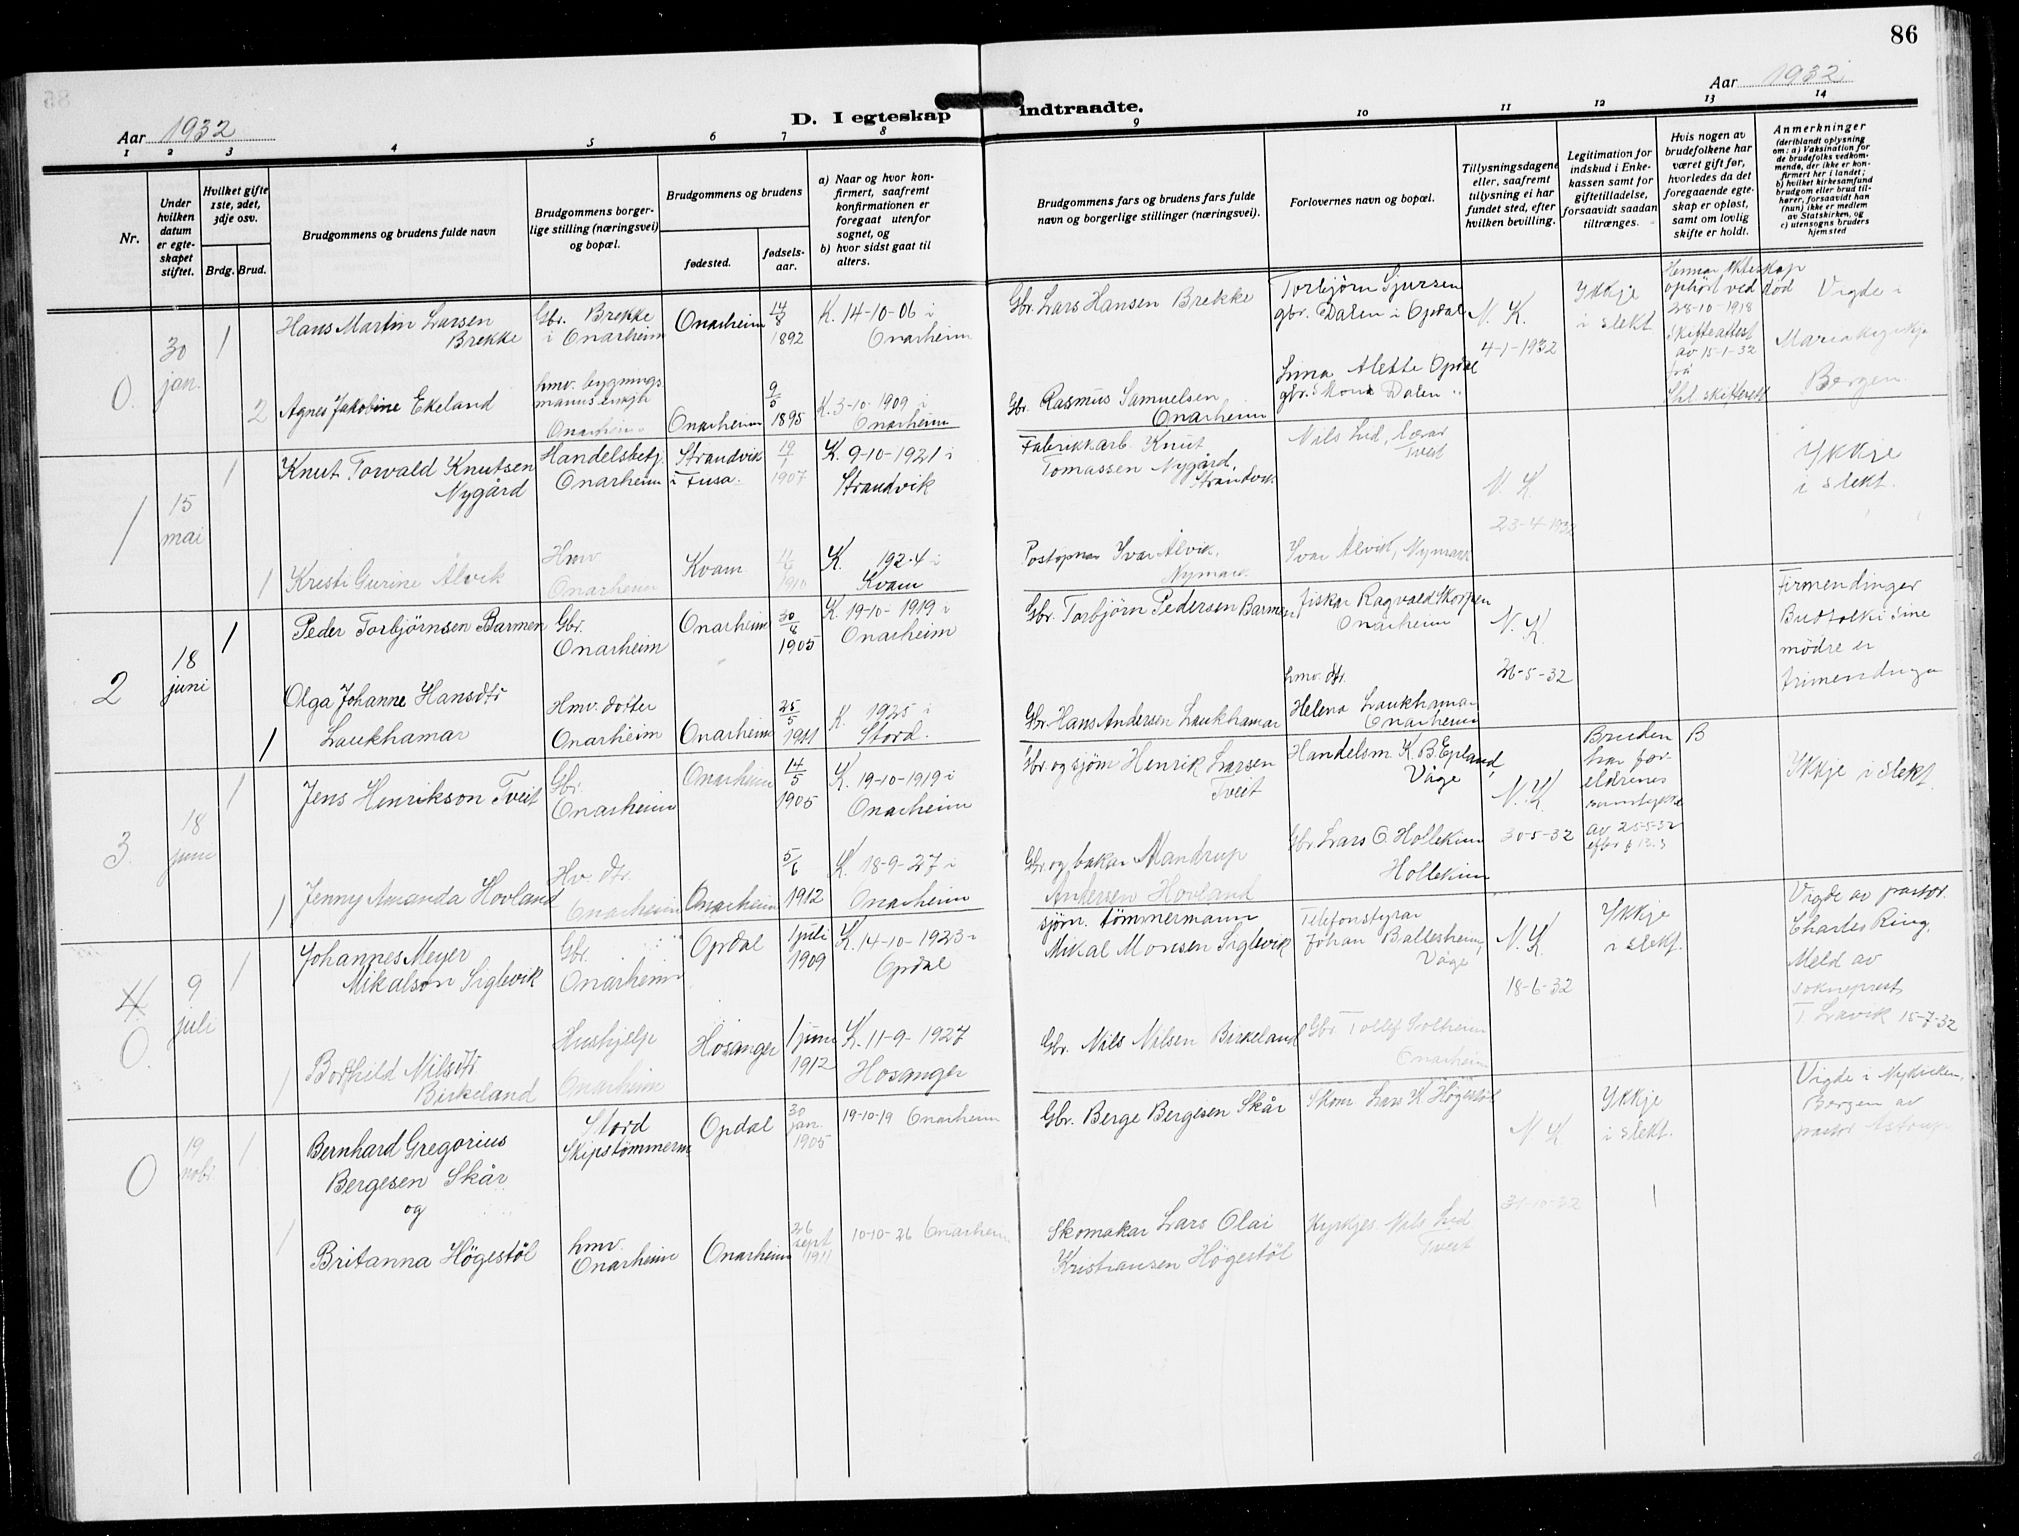 86
Aar 1932
Aar 1932
D. I egteskap indtraadte.
1 2 3 4 5 6 7 8 9 10 11 12 13 14
Nr.
Under hvilken datum er egteskapet stiftet.
Hvilket gifte 1ste, 2det, 3dje osv.
Brdg. Brud.
Brudgommens og brudens fulde navn
Brudgommens borgerlige stilling (næringsvei) og bopæl.
Brudgommens og brudens
fødested.
fødselsaar.
a) Naar og hvor konfirmert, saafremt konfirmationen er foregaat utenfor sognet, og
b) hvor sidst gaat til alters.
Brudgommens fars og brudens fars fulde navn og borgerlige stillinger (næringsvei).
Forlovernes navn og bopæl.
Tillysningsdagene eller, saafremt tillysning ei har fundet sted, efter hvilken bevilling.
Legitimation for indskud i Enkekassen samt for giftetilladelse, forsaavidt saadan tiltrænges.
Hvis nogen av brudefolkene har været gift før, hvorledes da det foregaaende egteskap er opløst, samt om lovlig skifte er holdt.
Anmerkninger (deriblandt oplysning om: a) Vaksination for de brudefolks vedkommende, der ikke er konfirmert her i landet; b) hvilket kirkesamfund brudgom eller brud tilhører, forsaavidt han (hun) ikke er medlem av Statskirken, og c) utensogns bruders hjemsted
0. 30 jan. 1
Hans Martin Larsen Brekke
Gbr. Brekke i Onarheim
Onarheim
14/8 1892
K. 14-10-06 i Onarheim
Gbr. Lars Hansen Brekke
Torbjørn Sjursen gbr. Dalen i Opdal
N. K. 4-1-1932
Ykkje i slekt
ophört ved död 28-10-1918 Skifteattest av 15-1-32 frå
Vigde i Mariakyrkje Bergen.
2
Agnes Jakobine Ekeland
hmv. bygnings
Onarheim
Onarheim
9/5 1895
K. 3-10-1909 i Onarheim
Gbr. Rasmus Samuelsen Onarheim
Lina Alette Opdal gbr. Mons Dalen
1 15 mai 1
Knut Torvald Knutsen Nygård
Handelsbetj. Onarheim
Strandvik i Fusa.
1907
K. 9-10-1921 i Strandvik
Fabrikkarb. Knut Tomassen Nygård, Strandvik
Nils Lid, lærar Tveit
N. K. 23-4-1932
Ykkje i slekt.
1
Kristi Gurine Ålvik
Hmv Onarheim
Kvam
1910
K. 1924 i Kvam
Postopnar Ivar Ålvik, Nymark
Ivar Ålvik, Nymark
2 18 juni 1
Peder Torbjørnsen Barmen
Gbr. Onarheim
Onarheim
30/8 1905
K. 19-10-1919 i Onarheim
Gbr. Torbjörn Pedersen Barmen
fiskar Ragvald Skorpen Onarheim
N. K. 26-5-32
Firmendinger
mødre er
1
Olga Johanne Hansdtr Laukhamar
Hmv. dotter Onarheim
Onarheim
25/5 1911
K. 1925 i Stord.
Gbr. Hans Andersen Laukhamar
hmv. dtr. Helena Laukhamar Onarheim
3. 18 juni 1
Jens Henrikson Tveit
Gbr. Onarheim
Onarheim
14/5 1905
K. 19-10-1919 i Onarheim
Gbr. og sjøm Henrik Larsen Tveit
Handelsm. K. B. Epland, Våge
N. K. 30-5-32
Bruden har foreldrenes samtykke av 25-5-32
B
Ykkje i slekt
1
Jenny Amanda Hovland
Hv. dtr. Onarheim
Onarheim
5/6 1912
K. 18-9-27 i Onarheim
Gbr. og bakar Mandrup Andersen Hovland
Gbr Lars O. Hollekim Hollekim
4. 0. 9 juli 1
Johannes Meyer Mikalson Siglevik
Gbr. Onarheim
Opdal
1 juli 1909
K. 14-10-1923 i Opdal
sjøm. tömmermann Mikal Monsen Siglevik
Telefonstyrar Johan Ballesheim, Våge
N. K. 18-6-32
Ykkje i slekt.
Vigde av pastor Charles Ring, Meld av sokneprest T. Lavik 15-7-32
1
Borghild Nilsdtr Birkeland
Hushjelp Onarheim
Hosanger
1 juni 1912
K. 11-9-1927 Hosanger
Gbr. Nils Nilsen Birkeland
Gbr Tollef Solheim Onarheim
0 19 nobr. 1
Bernhard Gregorius Bergesen Skår
og
Stord Skipstømmerm
Opdal
30 jan. 1905
19-10-19 Onarheim
Gbr. Berge Bergesen Skår
Skom Lars K Högestöl
N K 31-10-32
Ykkje i slekt.
Vigde i Nykirken, Bergen av pastor Astrup
1
Britanna Högestöl
hmv. Onarheim
Onarheim
26 sept 1911
10-10-26 Onarheim
Skomakar Lars Olai Kristiansen Högestöl
Kyrkjes. Nils Lid Tveit